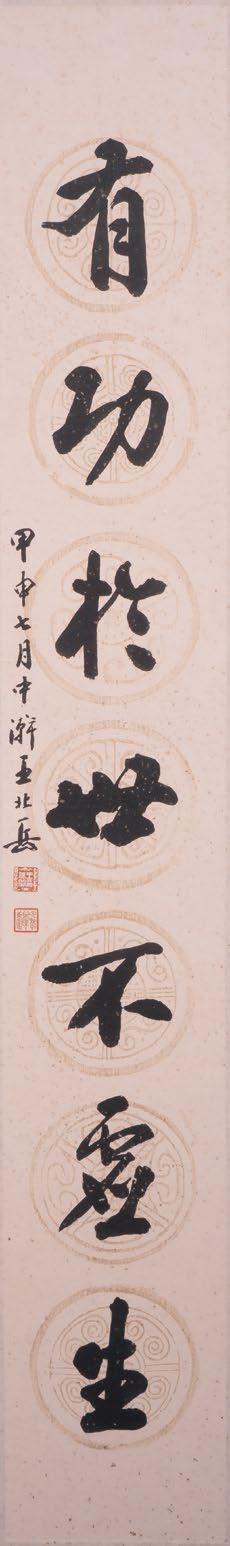 有功於世不虛生
甲申七月中澣王北岳